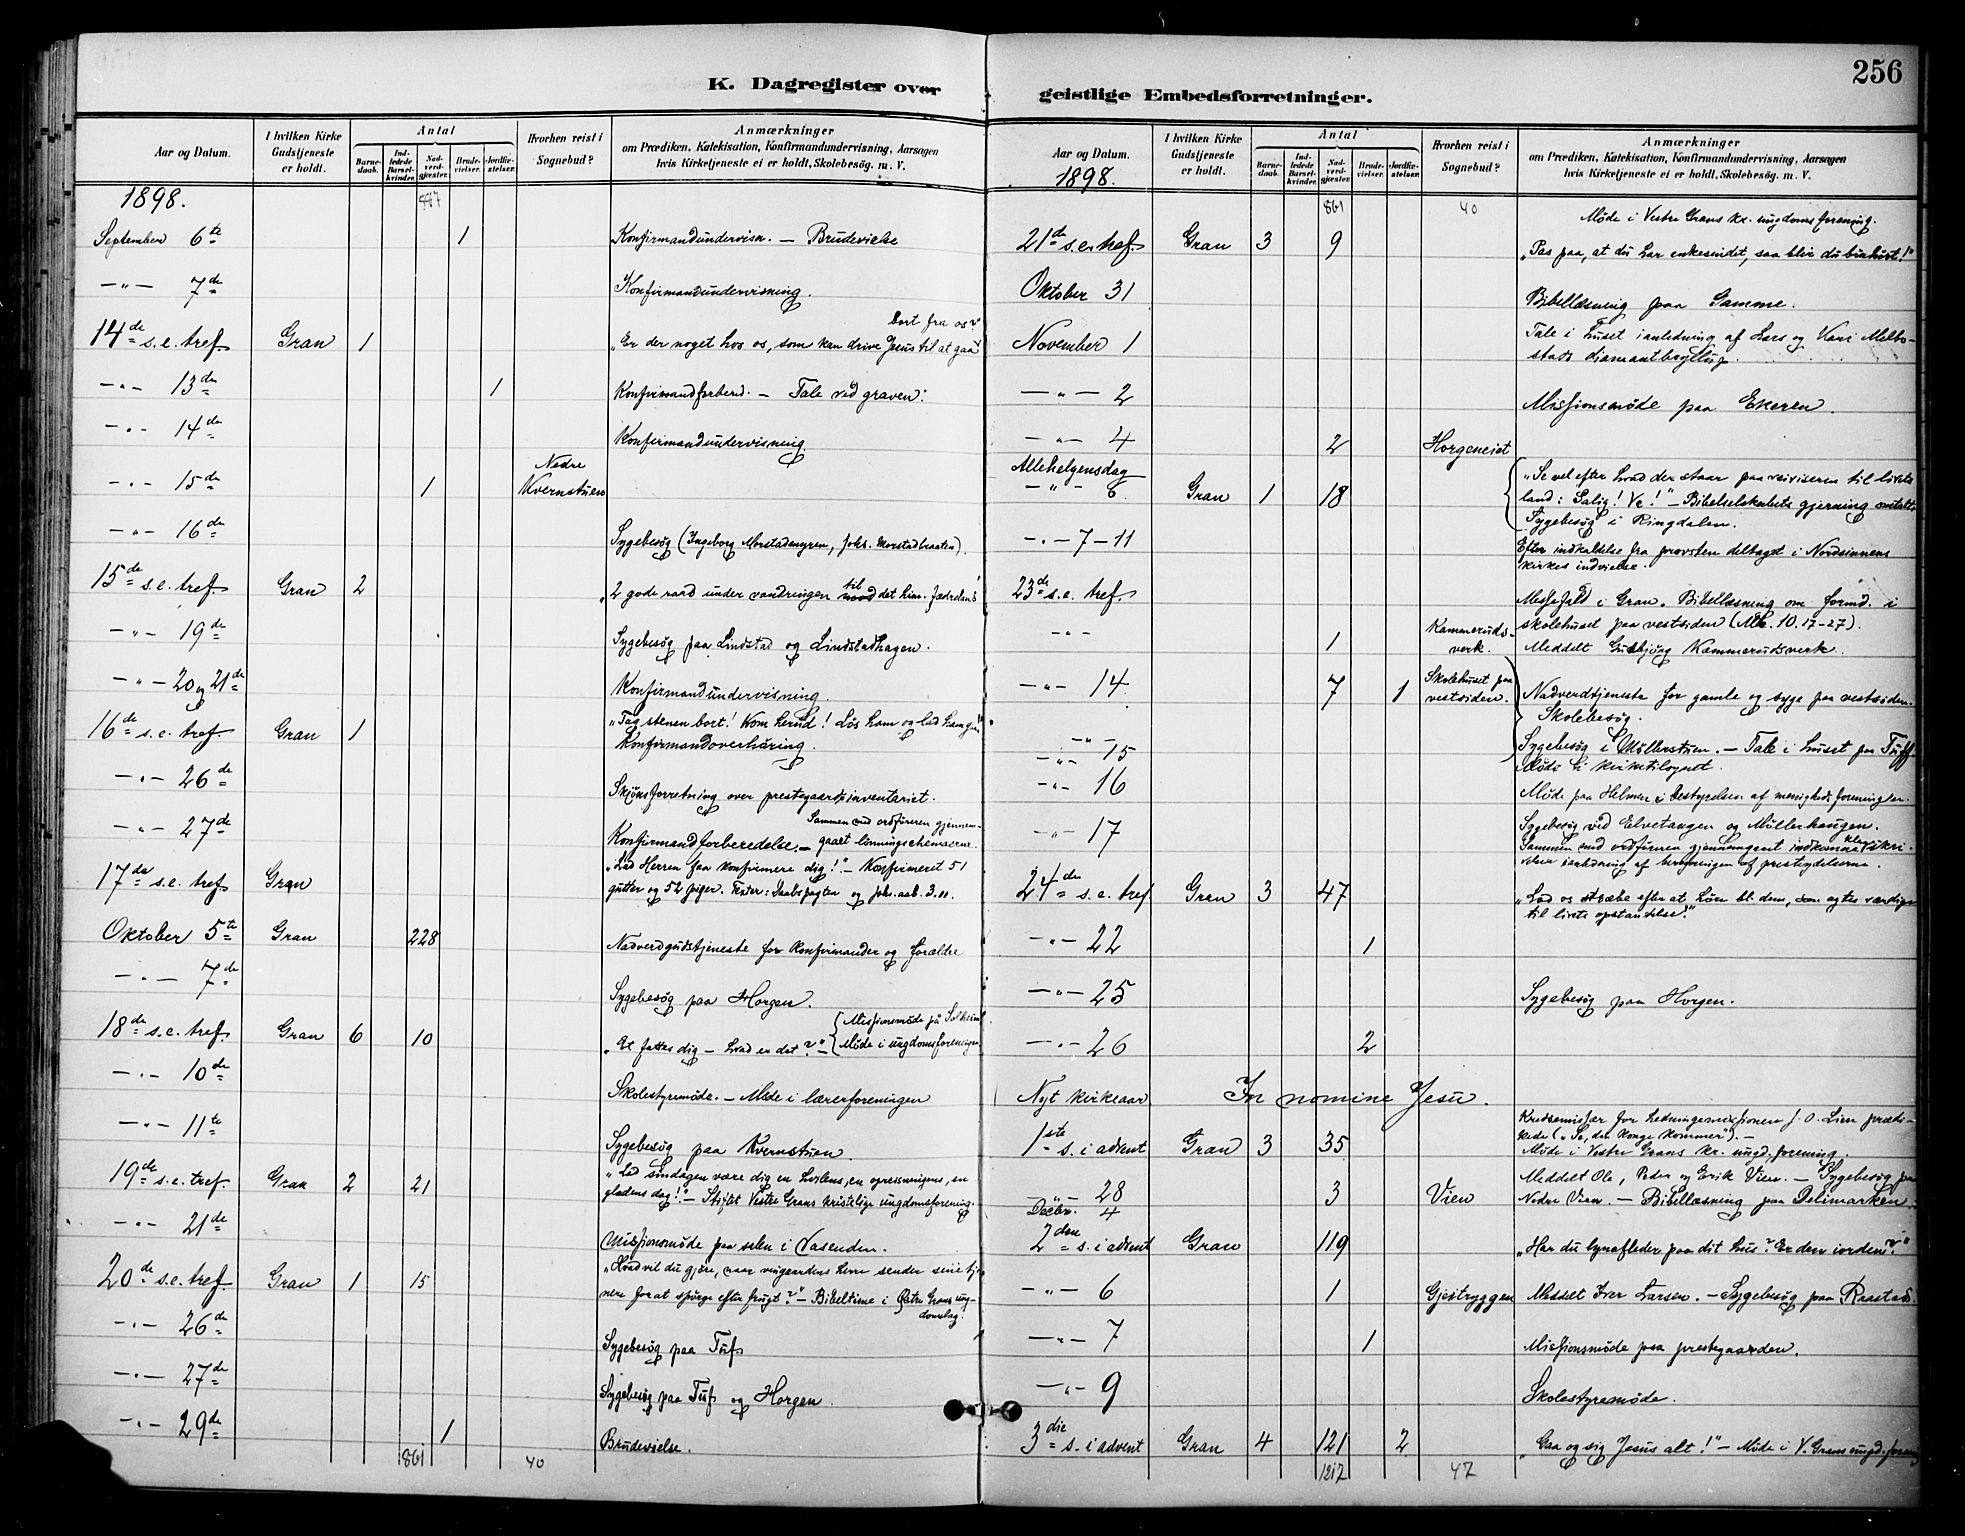 256
K. Dagregister over
Aar og Datum.
I hvilken Kirke Gudstjeneste er holdt.
Antal
Barnedaab.
Indledede Barselkvinder.
Nadverdgjester.
Brudevielser.
Jordfæstelser.
Hvorhen reist i Sognebud?
Anmærkninger
om Prædiken, Katekisation, Konfirmandundervisning, Aarsagen
hvis Kirketjeneste ei er holdt, Skolebesøg. m. V.
1898.
September 6te 1 Konfirmandundervisn. — Brudevielse
—"— 7de Konfirmandundervisning.
bort fra os?"
14de s.e. tref. Gran 1 „Er der noget hos os, som kan drive Jesus til at gaa
—"— 13de 1 Konfirmandforbered. — Tale ved graven:
—"— 14de Konfirmandundervisning
—"— 15de 1 Nedre Kvernstuen
—"— 16de Sygebesøg (Ingeborg Morstadmyren, Joh. Morstadbraaten).
15de s.e. tref. Gran 2 „2 gode raad under vandringen til det him. fædreland"
—"— 19de Sygebesøg paa Lindstad og Lindstadhagen.
—"— 20 og 21de Konfirmandundervisning.
16de s.e. tref. Gran 1 „Tag stenen bort! Kom herud! Løs ham og lad ham gaa!"
Konfirmandoverhøring.
—"— 26de Skjønsforretning over prestegaardsinventariet.
—"— 27de Konfirmandforberedelse. — Sammen med ordføreren gjennem-
gaaet lønningschemaerne.
17de s.e. tref. Gran „Lad Herren faa konfirmere dig!" — Konfirmeret 51
gutter og 52 piger. Texter: Daabspagten og Joh. aab. 3.11.
Oktober 5te Gran 228 Nadverdgudstjeneste for konfirmander og forældre
—"— 7de Sygebesøg paa Horgen.
18de s.e. tref. Gran 6 10 „Et fattes dig — hvad er det?" — Missionsmøde på Solheim
Møde i ungdomsforeningen
—"— 10de Skolestyremøde. — Møde i lærerforeningen
—"— 11te Sygebesøg paa Kvernstuen.
19de s.e. tref. Gran 2 21 „Lad Søndagen være dig en hvilens, en opreisningens, en
gladens dag!" — Stiftet Vestre Grans kristelige ungdomsforening.
—"— 21de Missionsmøde paa salen i Vasenden.
20de s.e. tref. Gran 1 15 „Hvad vil du gjøre, naar vingaardens herre sender sine tje-
nere for at spørge efter frugt?" — Bibeltime i Østre Grans ung-
domslag.
—"— 26de Sygebesøg paa Tuf
—"— 27de Sygebesøg paa Tuf og Horgen.
—"— 29de 1 Brudevielse.
861 40
geistlige Embedsforretninger.
Aar og Datum.
I hvilken Kirke Gudstjeneste er holdt.
Antal
Barnedaab.
Indledede Barselkvinder.
Nadverdgjester.
Brudevielser.
Jordfæstelser.
Hvorhen reist i Sognebud?
Anmærkninger
om Prædiken, Katekisation, Konfirmandundervisning, Aarsagen
hvis Kirketjeneste ei er holdt, Skolebesøg. m. V.
1898.
861 40
Møde i Vestre Grans kr. ungdomsforening.
21de s.e. tref. Gran 3 9 „Pas paa, at du har enkesindet, saa blir du bønhørt!"
Oktober 31 Bibellæsning paa Samme.
November 1 Tale i huset i anledning af Lars og Kari Melbo-
stads diamantbryllup.
—"— 2 Missionsmøde paa Ekeren.
—"— 4 2 Horgeneiet
Allehelgensdag
—"— 6 Gran 1 18 „Se vel efter hvad der staar paa veiviseren til livets
land: Salig! Ve!" — Bibelselskabets gjerning omtalt.
Sygebesøg i Ringdalen.
—"— 7–11 Efter indkaldelse fra provsten deltaget i Nordsinnens
kirkes indvielse.
23de s.e. tref. Messefald i Gran. Bibellæsning om formd. i
skolehuset paa vestsiden (Mk. 10.17–27).
—"— 1 Kammeruds-
verk. Meddelt Gudbjørg Kammerudsverk.
—"— 14 7 1 Skolehuset paa
vestsiden. Nadverdtjeneste for gamle og syge paa vestsiden.
Skolebesøg.
—"— 15 Sygebesøg i Møllerstuen. — Tale i huset paa Tuff
Møde i kirketilsynet.
—"— 16 Møde paa Helmen i bestyrelsen af menighedsforeningen.
—"— 17 Sygebesøg ved Elvetangen og Møllerhaugen.
Sammen med ordføreren gjennemgaaet indkomne skri-
velser i anledning af beregningen af presteydelserne.
24de s.e. tref. Gran 3 47 „Lad os stræbe efter at høre bl. dem, som agtes værdige
til livets opstandelse."
—"— 22 1
—"— 25 Sygebesøg paa Horgen.
—"— 26 2
Nyt kirkeaar In nomine Jesu.
1ste s. i advent Gran 3 35 Kredsemissær for hedningemissionen J. O. Lien prædi-
kede („Se, din konge kommer"). —
Møde i Vestre Grans kr. ungd. forening.
—"— 28 3 Vien Meddelt Ole, Peder og Erik Vien. — Sygebesøg paa
Nedre Vien. — Bibellæsning paa Delimarken.
Decbr. 4
2den s. i advent Gran 119 „Har du lynafleder paa dit hus? Er den i orden?"
—"— 6 1 Gjestryggen Meddelt Iver Larsen. — Sygebesøg paa Raastad.
—"— 7 1 Missionsmøde paa prestegaarden.
—"— 9 Skolestyremøde.
3die s. i advent Gran 4 121 2 „Gaa og sig Jesus alt!" — Møde i V. Grans ungd. forening
1217 47